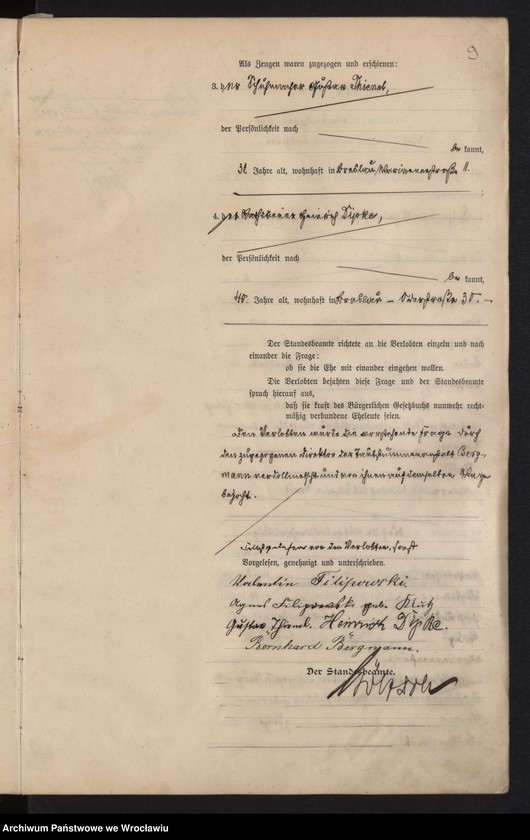 9
Als Zeugen waren zugezogen und erschienen:
3. der Schuhmacher Gustav Thienel,
der Persönlichkeit nach
be kannt,
31 Jahre alt, wohnhaft in Breslau, Mariannenstraße 11.
4. der
Heinrich Dipke,
der Persönlichkeit nach
be kannt,
40 Jahre alt, wohnhaft in Breslau – Oderstraße 30. –
Der Standesbeamte richtete an die Verlobten einzeln und nach
einander die Frage:
ob sie die Ehe mit einander eingehen wollen.
Die Verlobten bejahten diese Frage und der Standesbeamte
sprach hierauf aus,
daß sie kraft des Bürgerlichen Gesetzbuchs nunmehr recht-
mäßig verbundene Eheleute seien.
Den Verlobten wurde die vorstehende Frage durch
den zugezogenen Direktor der Taubstummenanstalt Berg-
mann verdolmetscht und von ihnen auf demselben Wege
bejaht.
von den Verlobten, sonst
Vorgelesen, genehmigt und unterschrieben.
Valentin Filipowski.
Agnes Filipowski geb.
Gustav Thienel. Heinrich Dipke.
Bernhard Bergmann.
Der Standesbeamte.
Archiwum Państwowe we Wrocławiu